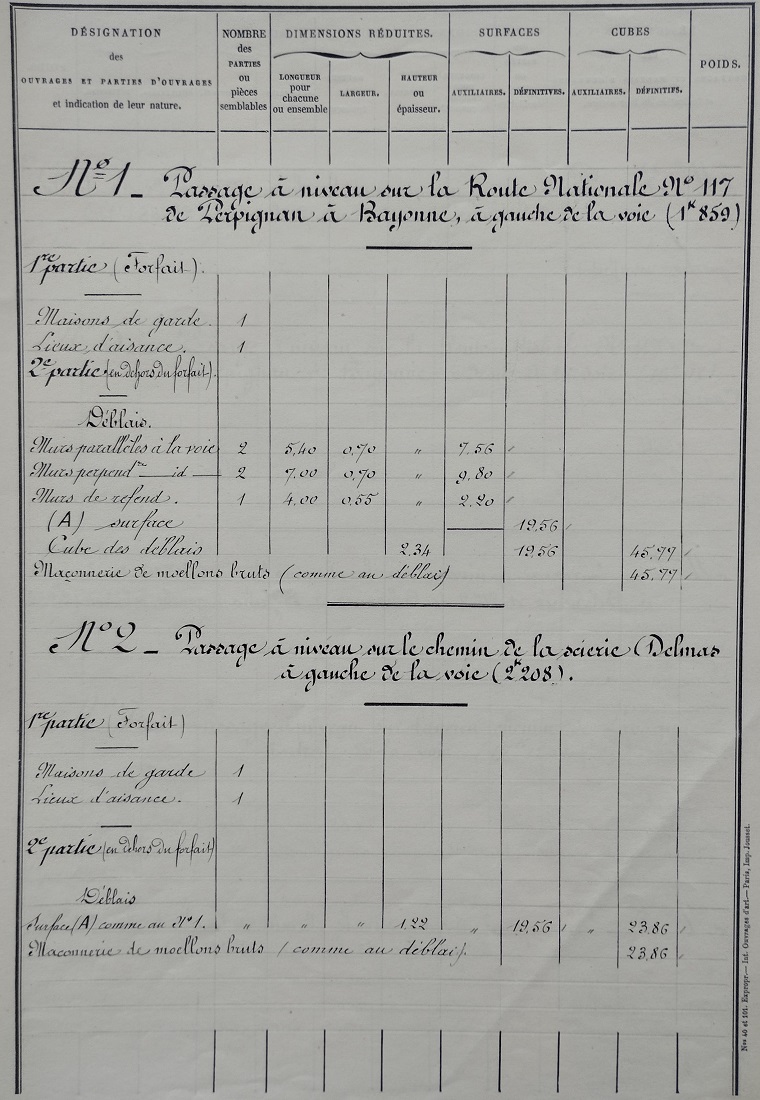 DÉSIGNATION
des
OUVRAGES ET PARTIES D'OUVRAGES
et indication de leur nature.
NOMBRE
des
PARTIES
ou
pièces
semblables
DIMENSIONS RÉDUITES.
LONGUEUR
pour
chacune
ou ensemble
LARGEUR.
HAUTEUR
ou
épaisseur.
SURFACES
AUXILIAIRES.
DÉFINITIVES.
CUBES
AUXILIAIRES.
DÉFINITIFS.
POIDS.
Nº 1 _ Passage à niveau sur la Route Nationale Nº 117
de Perpignan à Bayonne, à gauche de la voie (1ᵏ 859)
1re partie (Forfait).
Maisons de garde. 1
Lieux d'aisance. 1
2e partie (en dehors du forfait).
Déblais.
Murs parallèles à la voie 2 5,40 0,70 " 7,56
Murs perpendres — id — 2 7,00 0,70 " 9,80
Murs de refend. 1 4,00 0,55 " 2,20
(A) surface 19,56
Cube des déblais 2,34 19,56 45,77
Maçonnerie de moellons bruts (comme au déblai) 45,77
Nº 2 _ Passage à niveau sur le chemin de la scierie (Delmas
à gauche de la voie (2ᵏ 208).
1re partie (Forfait)
Maisons de garde 1
Lieux d'aisance. 1
2e partie (en dehors du forfait)
Déblais
Surface (A) comme au Nº 1. " " " 1,22 " 19,56 " 23,86
Maçonnerie de moellons bruts (comme au déblai). 23,86
Nos 46 et 101. Expropr.— Inf. Ouvrages d'art.— Paris, Imp. Jousset.